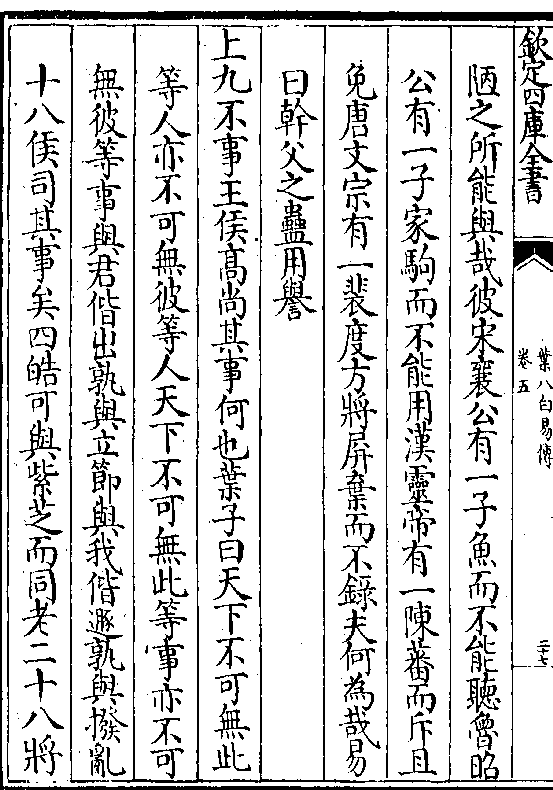 欽定四庫全書
葉八白易傳
卷五
三七
陋之所能與哉彼宋襄公有一子魚而不能聽魯昭
公有一子家駒而不能用漢靈帝有一陳蕃而斥且
免唐文宗有一裴度方將屏棄而不錄夫何為哉易
曰幹父之蠱用譽
上九不事王侯高尚其事何也葉子曰天下不可無此
等人亦不可無彼等人天下不可無此等事亦不可
無彼等事與君偕出孰與立節與我偕遯孰與撥亂
十八侯司其事矣四皓可與紫芝而同老二十八將